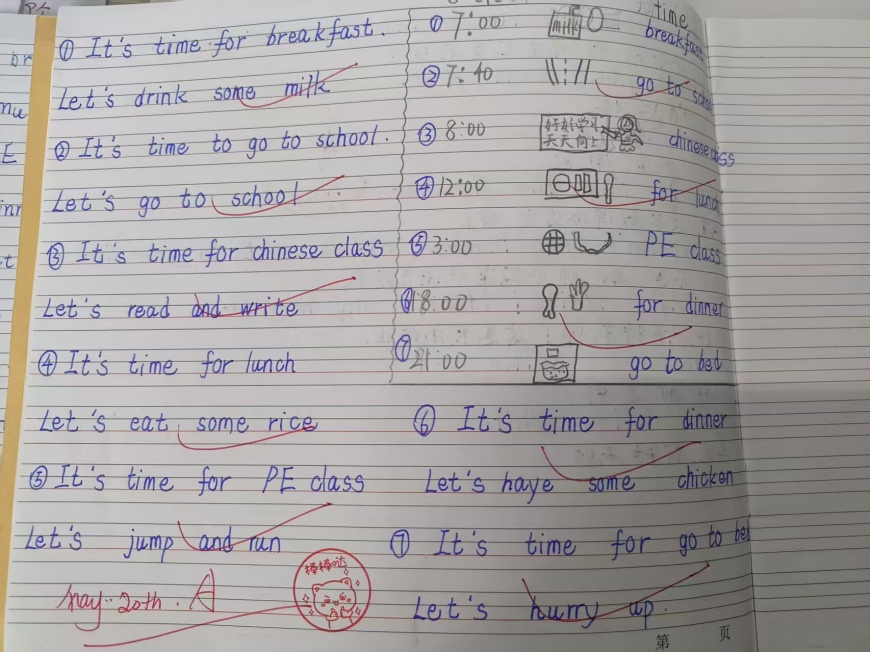 ① It's time for breakfast.
Let's drink some milk
② It's time to go to school.
Let's go to school
③ It's time for chinese class
Let's read and write
④ It's time for lunch
Let's eat some rice
⑤ It's time for PE class
Let's jump and run
May. 20th. A
棒棒哒
time
① 7:00 milk breakfast
② 7:40 go to school
③ 8:00 好好学习 chinese class
天天向上
④ 12:00 for lunch
⑤ 3:00 PE class
⑥ 18:00 for dinner
⑦ 21:00 go to bed
⑥ It's time for dinner
Let's have some chicken
⑦ It's time for go to bed
Let's hurry up.
第 页